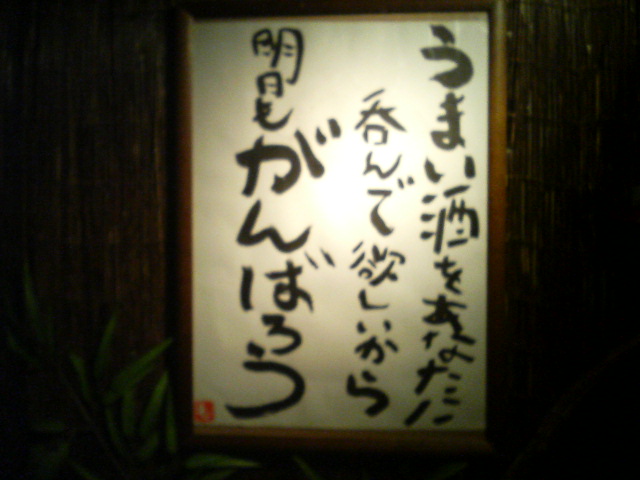 うまい酒をあなたに
呑んで欲しいから
明日も
がんばろう